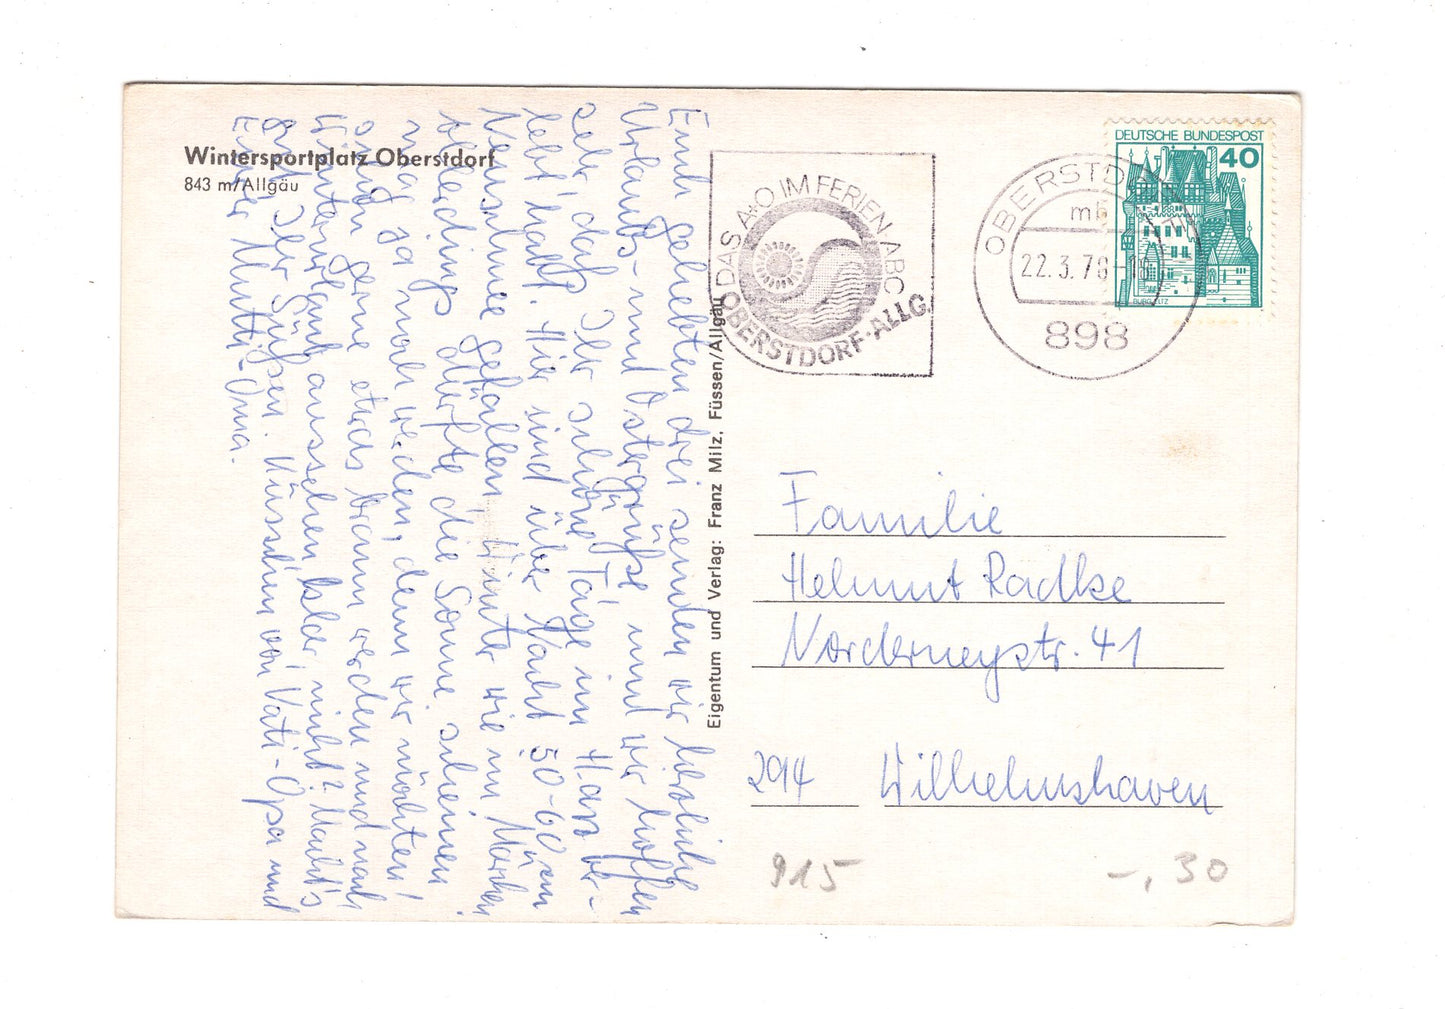 Wintersportplatz Oberstdorf
843 m/Allgäu
Euch geliebten drei senden wir herzliche
Urlaubs- und Ostergrüße, und wir hoffen
sehr, daß Ihr schöne Tage im Harz er-
lebt habt. Hier sind über Nacht 50-60 cm
Neuschnee gefallen, Winter wie im Märchen,
allerdings dürfte die Sonne scheinen,
mag ja noch werden, denn wir möchten
auch gerne etwas braun werden und nach
Winterurlaub aussehen, oder nicht? Macht's
gut, Ihr Süßen. Küsschen von Vati-Opa und
Eurer Mutti-Oma.
Eigentum und Verlag: Franz Milz, Füssen/Allgäu
DAS A+O IM FERIEN ABC
OBERSTDORF·ALLG.
OBERSTDORF
22.3.78-18
898
DEUTSCHE BUNDESPOST
40
BURG ELTZ
Familie
Helmut Radtke
Norderneystr. 41
294 Wilhelmshaven
915
-,30